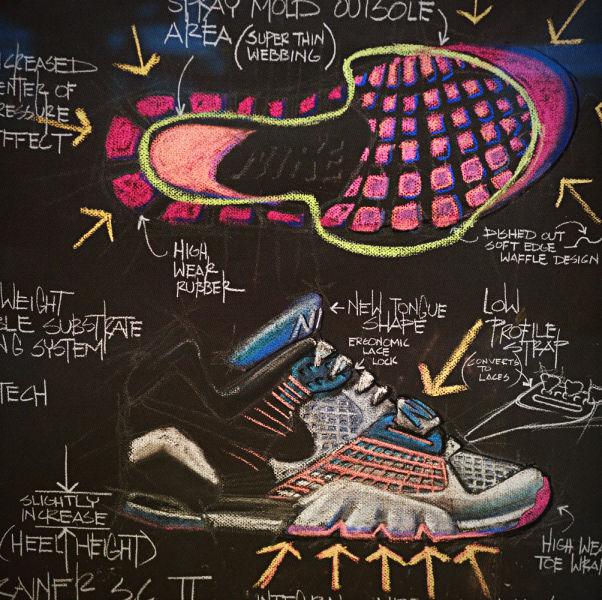 SPRAY MOLD OUTSOLE
AREA (SUPER THIN
WEBBING)
CREASED
CENTER OF
PRESSURE
EFFECT
NIKE
HIGH
WEAR
RUBBER
DISHED OUT
SOFT EDGE
WAFFLE DESIGN
WEIGHT
SUBSTRATE
SYSTEM
TECH
NEW TONGUE
SHAPE
ERGONOMIC
LACE
LOCK
LOW
PROFILE
STRAP
(CONVERTS
TO
LACES)
SLIGHTLY
INCREASE
(HEEL HEIGHT)
HIGH WEA
TOE WRAP
RAINER SC II